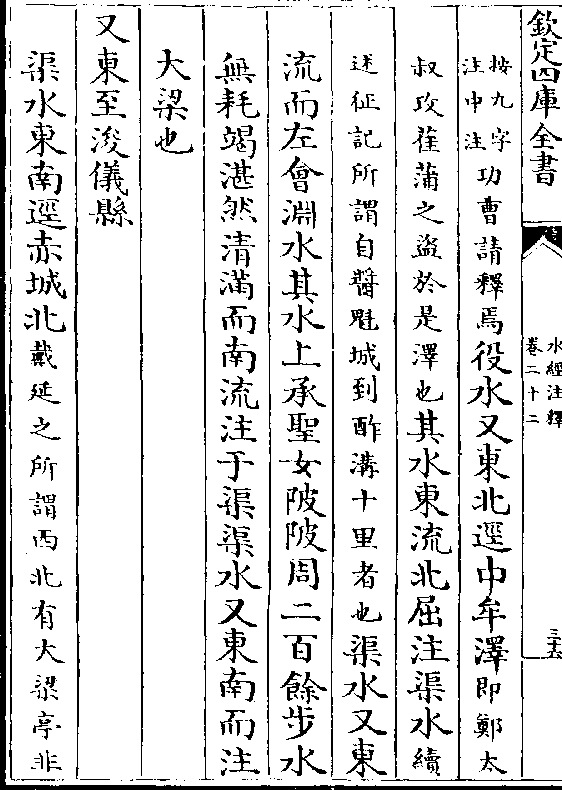 欽定四庫全書
水經注釋
卷二十二
三十六
按九字
注中注
功曹請釋焉役水又東北逕中牟澤即鄭太
叔攻萑蒲之盜於是澤也其水東流北屈注渠水續
述征記所謂自醬魁城到酢溝十里者也渠水又東
流而左會淵水其水上承聖女陂陂周二百餘步水
無耗竭湛然清滿而南流注于渠渠水又東南而注
大梁也
又東至浚儀縣
渠水東南逕赤城北戴延之所謂西北有大梁亭非